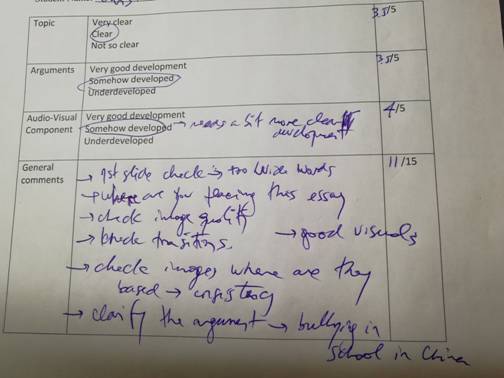 Topic
Very clear
Clear
Not so clear
3.5/5
Arguments
Very good development
Somehow developed
Underdeveloped
3.5/5
Audio-Visual
Component
Very good development
Somehow developed → needs a bit more clear
development
Underdeveloped
4/5
General
comments
11/15
→ 1st slide check → too wide words
→ where are you placing this essay
→ check image quality
→ transitions. → good visuals
→ check images where are they
based → consistency
→ clarify the argument → bullying in
school in China